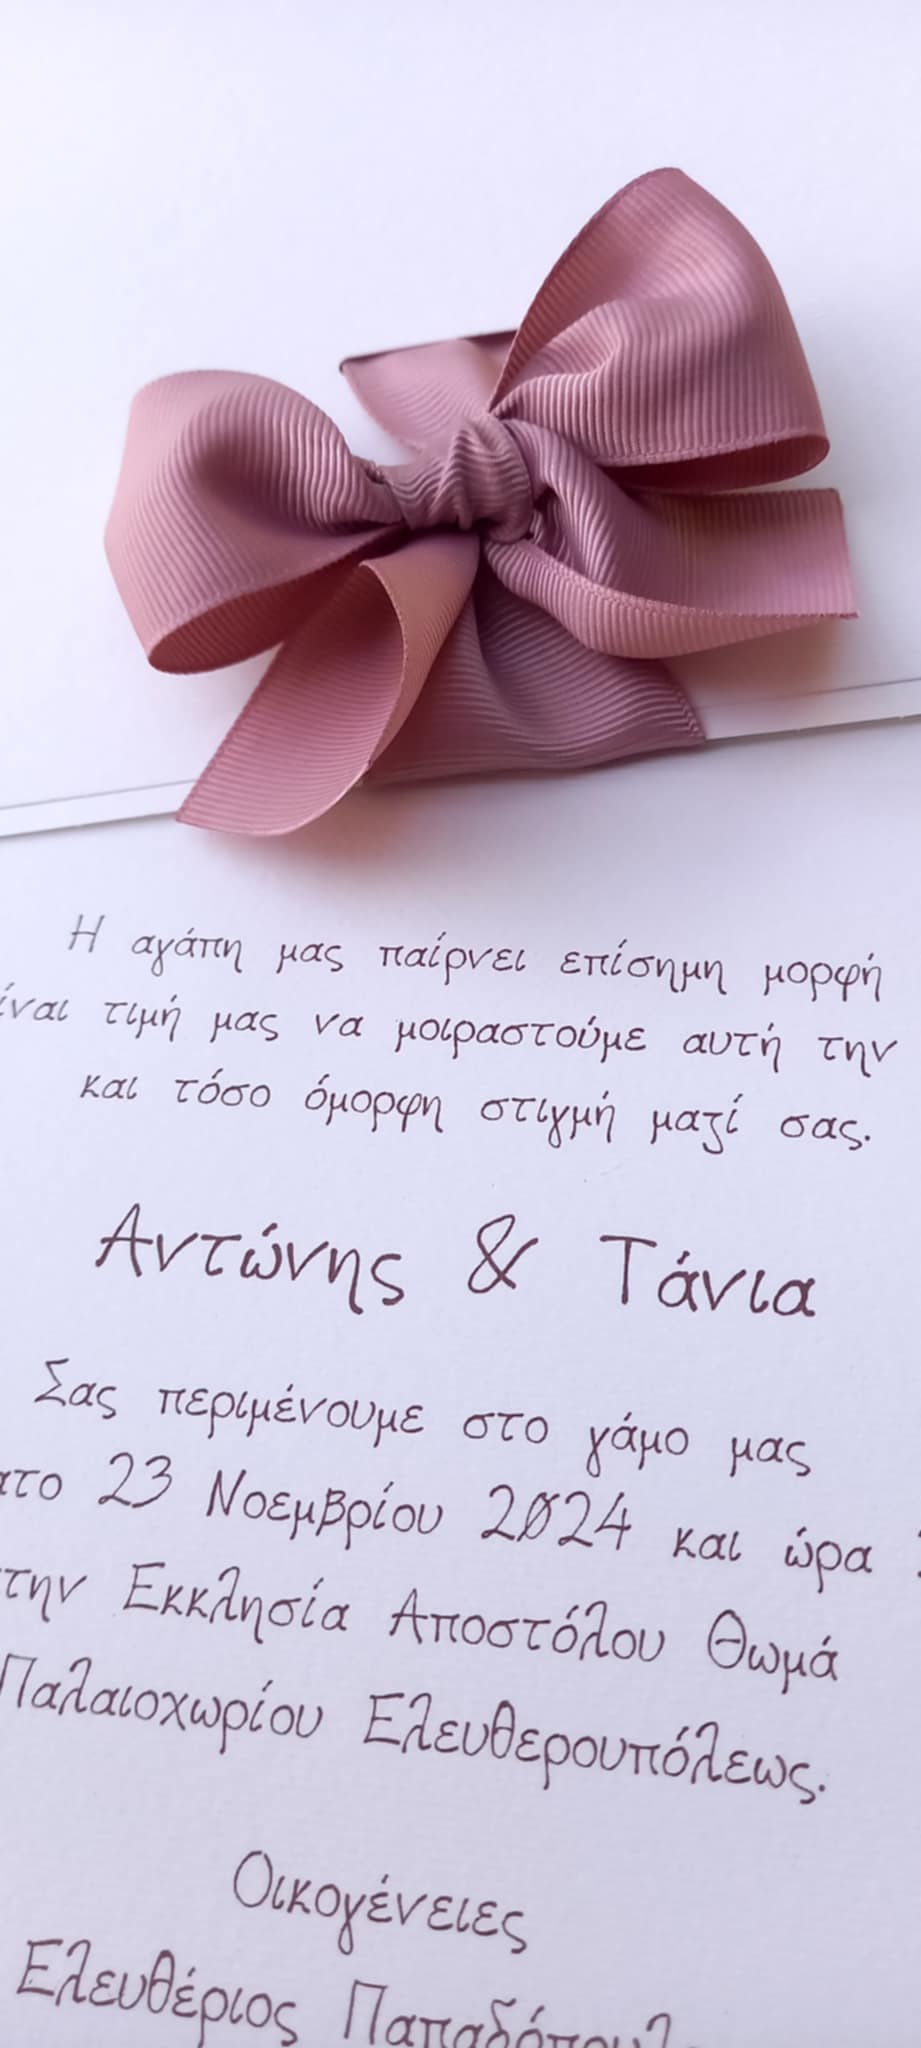 Η αγάπη μας παίρνει επίσημη μορφή
ίναι τιμή μας να μοιραστούμε αυτή την
και τόσο όμορφη στιγμή μαζί σας.
Αντώνης & Τάνια
Σας περιμένουμε στο γάμο μας
ατο 23 Νοεμβρίου 2024 και ώρα
την Εκκλησία Αποστόλου Θωμά
Παλαιοχωρίου Ελευθερουπόλεως.
Οικογένειες
Ελευθέριος